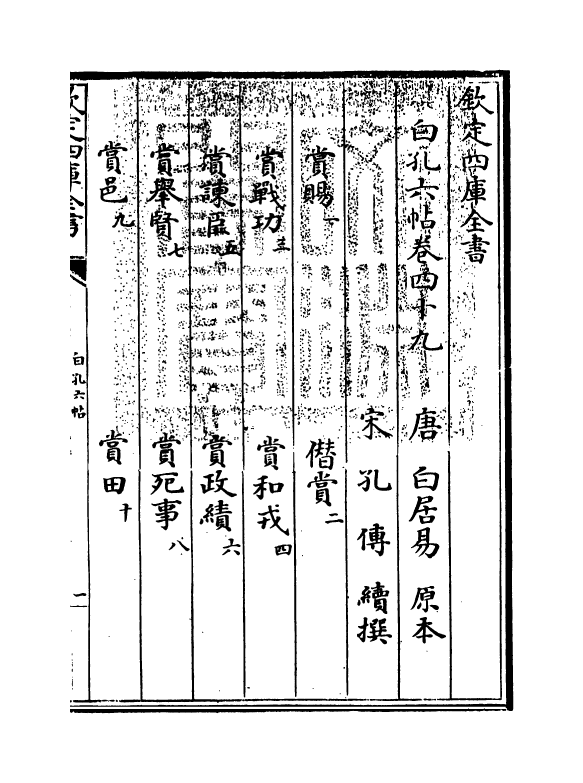 欽定四庫全書
白孔六帖卷四十九
唐 白居易 原本
宋 孔傳 續撰
賞賜一 僭賞二
賞戰功三 賞和戎四
賞諫臣五 賞政績六
賞舉賢七 賞死事八
賞邑九 賞田十
欽定四庫全書
白孔六帖
一